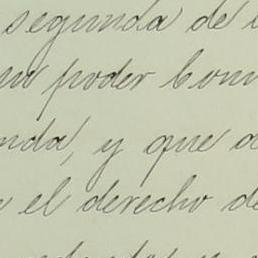 segunda de
poder
nda, y que
el derecho de